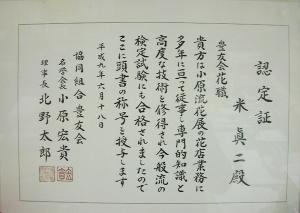 認定証
豊友会花職
米眞二殿
貴方は小原流花展の花店業務に
多年に亘って従事し専門的知識と
高度な技術を修得され今般流の
検定試験にも合格されましたので
ここに頭書の称号を授与します
平成九年六月十八日
協同組合 豊友会
名誉会長 小原宏貴
理事長 北野太郎